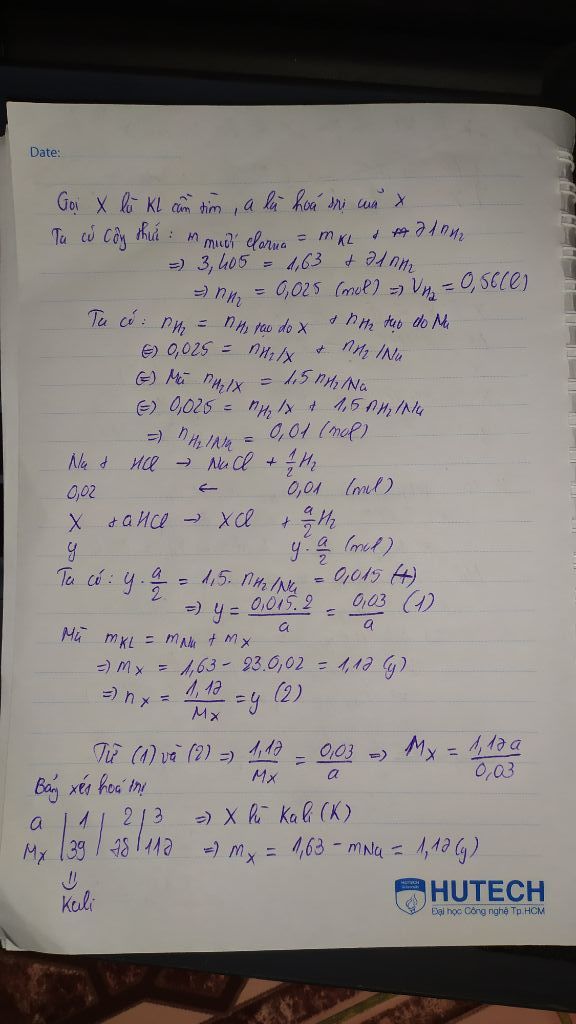 Date:
Gọi X là KL cần tìm, a là hoá trị của X
Ta có công thức: m muối clorua = mKL + 71nH₂
⇒ 3,405 = 1,63 + 71nH₂
⇒ nH₂ = 0,025 (mol) ⇒ VH₂ = 0,56(l)
Ta có: nH₂ = nH₂ tạo do X + nH₂ tạo do Na
(=) 0,025 = nH₂/X + nH₂/Na
(=) Mà nH₂/X = 1,5 nH₂/Na
(=) 0,025 = nH₂/X + 1,5 nH₂/Na
⇒ nH₂/Na = 0,01 (mol)
Na + HCl → NaCl + 1/2 H₂
0,02 ← 0,01 (mol)
X + aHCl → XCl + a/2 H₂
y y . a/2 (mol)
Ta có: y . a/2 = 1,5 . nH₂/Na = 0,015
⇒ y = 0,015.2/a = 0,03/a (1)
Mà mKL = mNa + mX
⇒ mX = 1,63 - 23.0,02 = 1,17 (g)
⇒ nX = 1,17/MX = y (2)
Từ (1) và (2) ⇒ 1,17/MX = 0,03/a ⇒ MX = 1,17a/0,03
Bảng xét hoá trị
a | 1 | 2 | 3 ⇒ X là Kali (K)
MX | 39 | 78 | 117 ⇒ mX = 1,63 - mNa = 1,17(g)
⇓
Kali
HUTECH
Đại học Công nghệ Tp.HCM